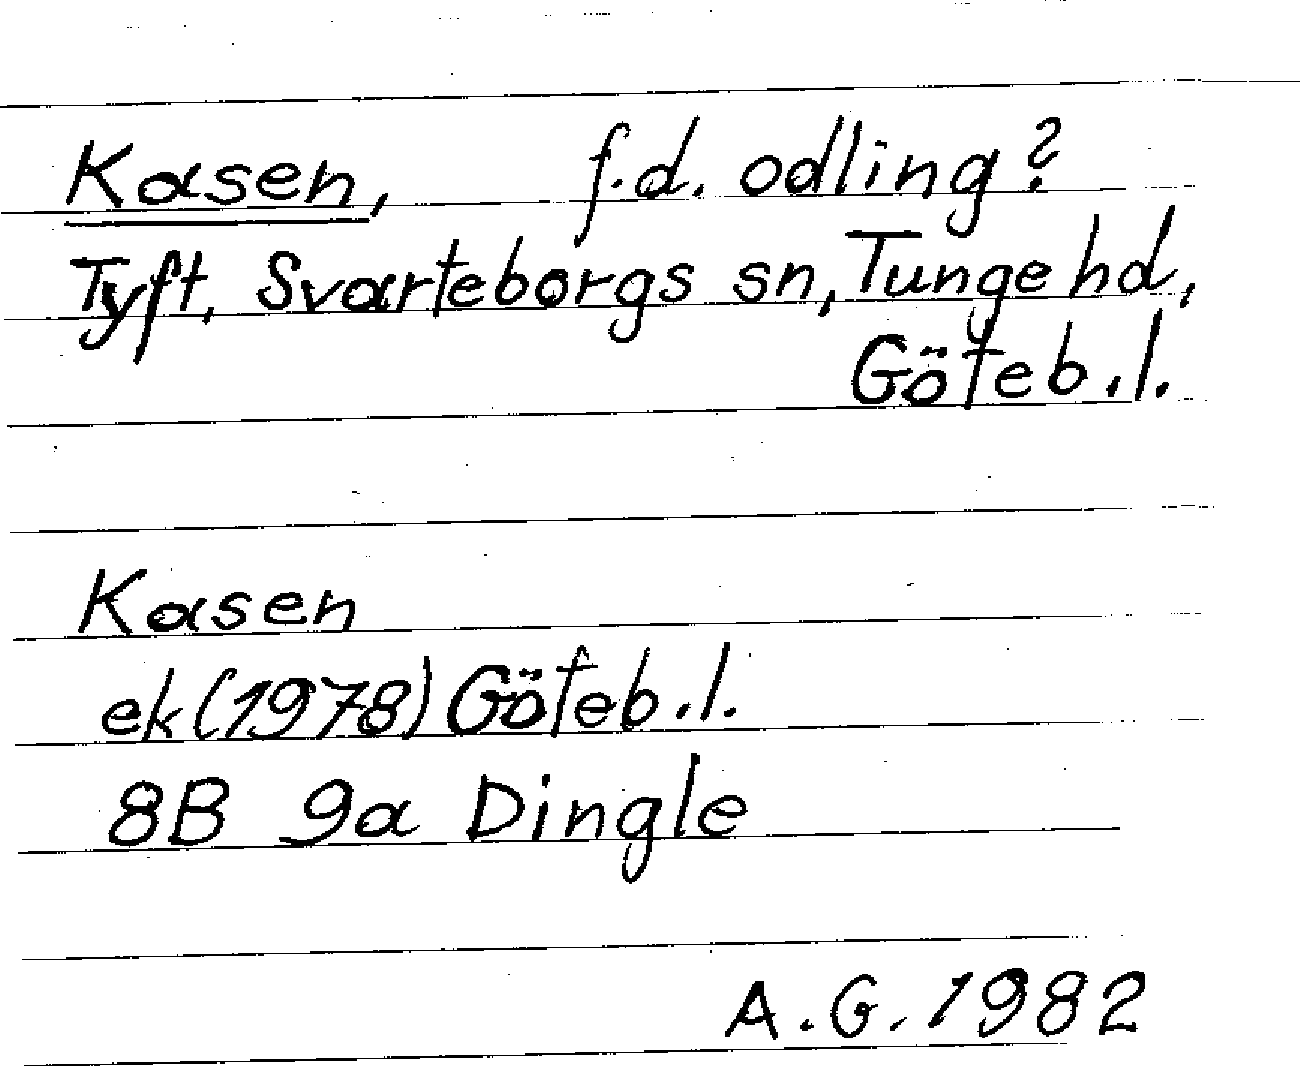 Kasen, f.d. odling?
Tyft, Svarteborgs sn, Tunge hd,
Göteb.l.
Kasen
ek(1978) Göteb.l.
8B 9a Dingle
A.G. 1982